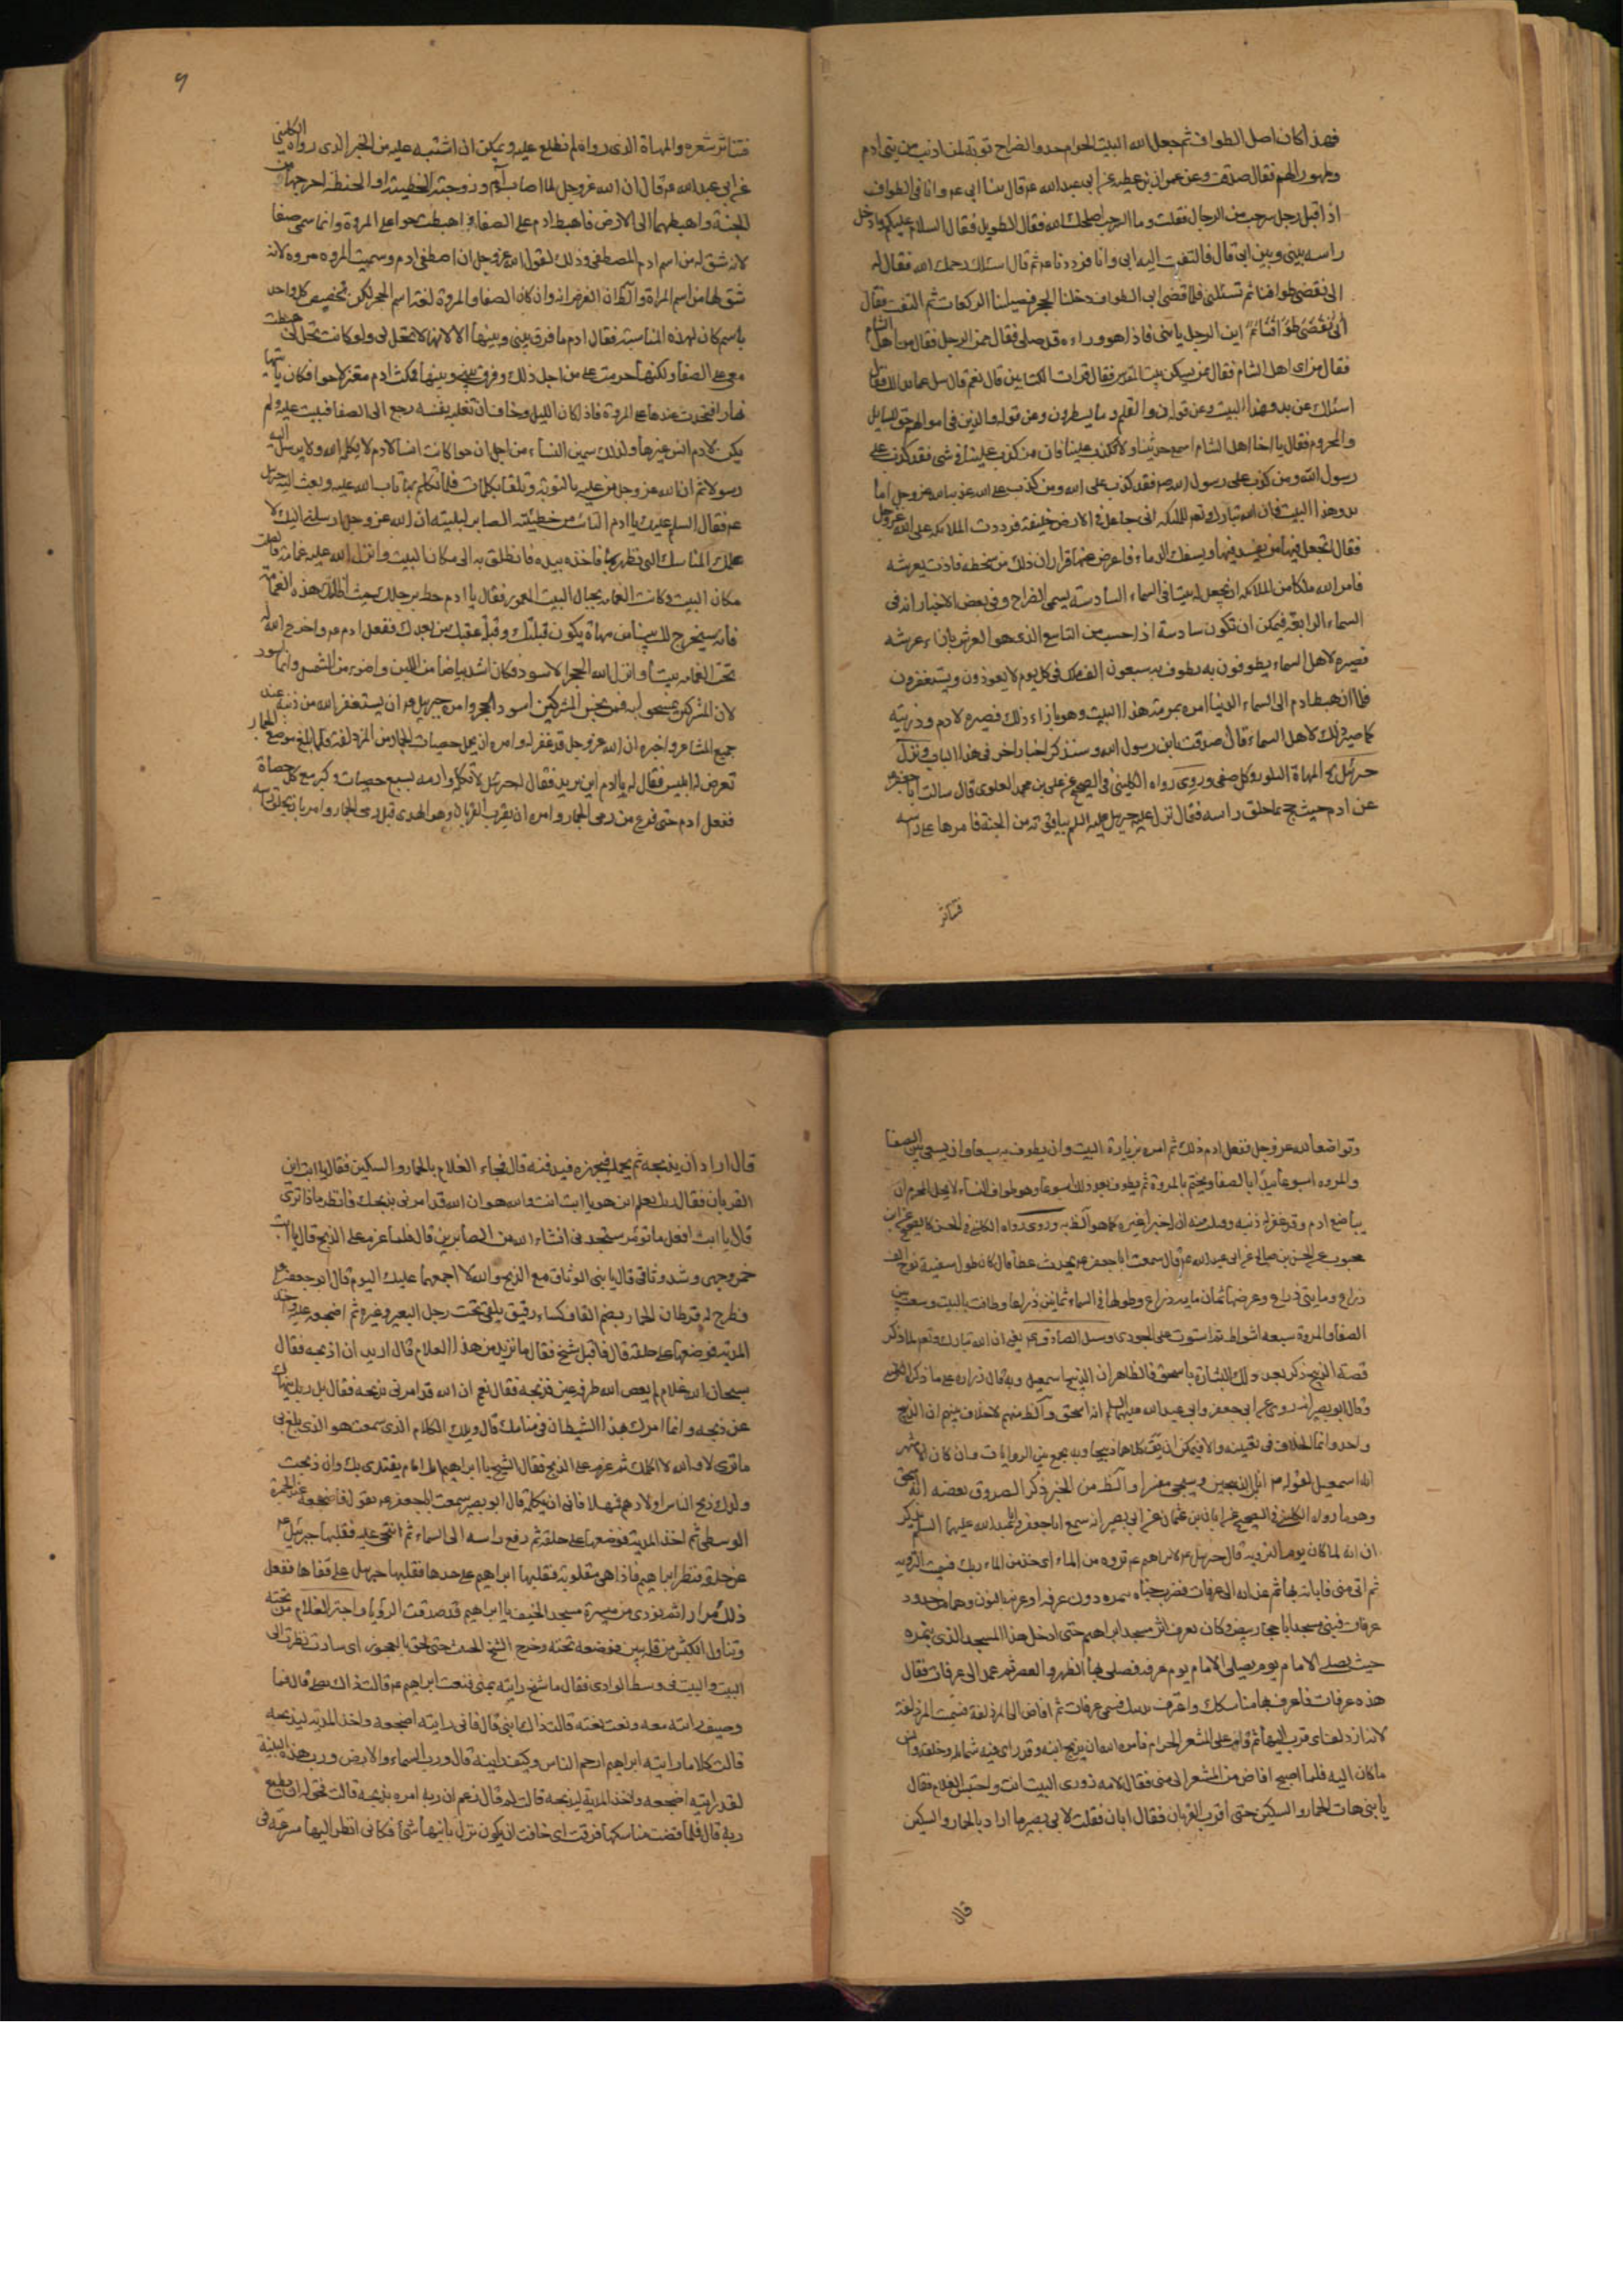 فهذا كان اصل الطواف ثم جعل الله البيت الحرام حدو الضراح توبة لمن اذنب من بنى ادم
وطهورا لهم فقال صدقت وعن عمران بن عطيه عن ابى عبد الله عم قال بينا ابى عم وانا فى الطواف
اذ اقبل رجل شرجب من الرجال فقلت وما الشرجب اصلحك الله فقال الطويل فقال السلام عليكم وادخل
راسه بينى وبين ابى قال فالتفت اليه ابى وانا فرددنا عم ثم قال اسئلك رحمك الله فقال له
ابى نقضى طوافنا ثم تسئلنى فلما قضى ابى الطواف دخلنا الحجر فصلينا الركعات ثم التفت فقال
اين الرجل يا بنى فاذا هو وراءه قد صلى فقال ممن الرجل فقال من اهل الشام
فقال من اى اهل الشام فقال ممن يسكن بيت المقدس فقال قرات الكتابين قال نعم قال سل عما بدا لك فقال
اسئلك عن بدو هذا البيت وعن قوله ن والقلم وما يسطرون وعن قوله والذين فى اموالهم حق للسايل
والمحروم فقال يا اخا اهل الشام اسمع حديثنا ولا تكذب علينا فان من كذب علينا فى شئ فقد كذب على
رسول الله ومن كذب على رسول الله ص فقد كذب على الله ومن كذب على الله عذبه الله عز وجل اما
بدو هذا البيت فان الله تبارك وتعم قال للملئكه انى جاعل فى الارض خليفة فردت الملائكه على الله عز وجل
فقال اتجعل فيها من يفسد فيها ويسفك الدماء فاعرض عنها فرات ان ذلك من سخطه فلاذت بعرشه
فامر الله ملكا من الملائكه ان يجعل له بيتا فى السماء السادسة يسمى الضراح وفى بعض الاخبار انه فى
السماء الرابعة فيمكن ان تكون سادسة اذا حسب من التاسع الذى هو العرش بازاء عرشه
فصيره لاهل السماء يطوفون به يطوف به سبعون الف ملك فى كل يوم لا يعودون ويستغفرون
فلما ان هبط ادم الى السماء الدنيا امره بمرمة هذا البيت وهو بازاء ذلك فصيره لادم وذريته
كما صير ذلك لاهل السماء قال صدقت يابن رسول الله وسنذكر اخبارا اخر فى هذا الباب ونزل
جبرئيل ع المهاة البلور وكل صفى وروى رواه الكلينى فى الصحيح عن على بن محمد العلوى قال سالت ابا جعفر ع
عن ادم حيث حج بما حلق راسه فقال نزل عليه جبريل عليه السلم بياقوته من الجنة فامرها على راسه
فتناثر
فتناثر شعره والمهاة الذى رواه لم نطلع عليه ويمكن ان اشتبه عليه من الخبر الذى رواه الكلينى
عن ابى عبد الله عم قال ان الله عز وجل لما اصاب ادم وزوجته الخطيئة او الحنطة اخرجهما من
الجنة واهبطهما الى الارض فاهبط ادم على الصفا واهبطت حوا على المروة وانما سمى صفا
لانه شق له من اسم ادم المصطفى وذلك لقول الله عز وجل ان اصطفى ادم وسميت المروه مروه لانه
شق لها من اسم المراة والظ ان الغرض انه وان كان الصفا والمروة لغة اسم الحجر لكن تخصيص كل واحد
باسم كان لهذه المناسبة فقال ادم ما فرق بينى وبينها الا لانها لا تحل لى ولو كانت تحل لى هبطت
معى على الصفا ولكنها حرمت على من اجل ذلك وفرق بينى وبينها فمكث ادم معتزلا حوا فكان ياتيها
نهارا فيتحدث عندها على المروة فاذا كان الليل وخاف ان تغلبه نفسه رجع الى الصفا فيبيت عليه ولم
يكن لادم انس غيرها ولذلك سمين النساء من اجل ان حوا كانت انسا لادم لا يكلمه الله ولا يرسل اليه
رسولا ثم ان الله عز وجل من عليه بالتوبة وتلقاه بكلمات فلما تكلم بها تاب الله عليه وبعث اليه جبرئيل
عم فقال السلم عليك يا ادم التائب من خطيئته الصابر لبليته ان الله عز وجل ارسلنى اليك لا
علمك المناسك التى تطهر بها فاخذ بيده فانطلق به الى مكان البيت وانزل الله عليه غمامة فاظلت
مكان البيت وكانت الغمامه بحيال البيت المعمور فقال يا ادم خط برجلك حيث اظلت هذه الغمامة
فانه سيخرج لك بيتا من مهاة يكون قبلتك وقبلة عقبك من بعدك ففعل ادم عم واخرج الله له
تحت الغمامه بيتا وانزل الله الحجر الاسود فكان اشد بياضا من اللبن واضوء من الشمس وانما اسود
لان المشركين تمسحوا به فمن نجس المشركين اسود الحجر وامره جبريل عم ان يستغفر الله من ذنبه عند
جميع المشاعر واخبره ان الله عز وجل قد غفر له وامره ان يحمل حصيات الجمار من المزدلفة فلما بلغ موضع الجمار
تعرض له ابليس فقال له يا ادم اين تريد فقال له جبرئيل لا تكلمه وارمه بسبع حصيات وكبر مع كل حصاة
ففعل ادم حتى فرغ من رمى الجمار وامره ان يقرب القربان وهو الهدى قبل رمى الجمار وامره بان يحلق راسه
وتواضعا لله عز وجل ففعل ادم ذلك ثم امره بزيارة البيت وان يطوف به سبعا وان يسعى بين الصفا
والمروه اسبوعا يبدا بالصفا ويختم بالمروة ثم يطوف بعد ذلك اسبوعا وهو طواف النساء لا يحل للمحرم ان
يباضع ادم وقد غفر له ذنبه وروى رواه الكلينى فى الحسن كالصحيح عن ابن
محبوب عن الحسن بن صالح عن ابى عبد الله عم قال سمعت ابا جعفر عم يحدث عطا قال كان طول سفينة نوح الف
ذراع ومايتى ذراع وعرضها ثمان مايه ذراع وطولها فى السماء ثمانين ذراعا وطافت بالبيت وسعت بين
الصفا والمروة سبعه اشواط ثم استوت على الجودى وسئل الصادق عم يعنى ان الله تبارك وتعم لما ذكر
قصة الذبيح ذكر بعد ذلك البشارة باسحق فالظاهر ان الذبيح اسمعيل
وقال ابو بصير انه روى عن ابى جعفر وابى عبد الله عليهما السلم انه اسحق والظ منهم لا خلاف بينهم ان الذبيح
واحد وانما الخلاف فى تعيينه والا فيمكن ان يكون كلاهما ذبيحا وبه يجمع بين الروايات وان كان الاشهر
انه اسمعيل لقوله ص انا ابن الذبيحين وسيجئ مفسرا والظ من الخبر ذكر الصدوق بعضه انه اسحق
وهو ما رواه الكلينى فى الصحيح عن ابان بن عثمان عن ابى بصير انه سمع ابا جعفر وابا عبد الله عليهما السلم يذكر
ان انه لما كان يوم الترويه قال جبريل عم لابراهيم عم تروه من الماء اى خذ من الماء ريك فسميت الترويه
ثم اتى منى فاباته بها ثم غدا به الى عرفات فضرب خباه بنمره دون عرفه او عرنه بالنون وهما من حدود
عرفات فبنى مسجدا باحجار بيض وكان يعرف اثر مسجد ابراهيم حتى ادخل هذا المسجد الذى بنمره
حيث يصلى الامام يوم عرفه فصلى بها الظهر والعصر ثم عمد الى عرفات فقال
هذه عرفات فاعرف بها مناسكك واعترف بذنبك فسمى عرفات ثم افاض الى المزدلفة فسميت المزدلفة
لانه ازدلف اى قرب اليها ثم قام على المشعر الحرام فامره الله ان يذبح ابنه وقد راى فيه شمائله وخلقه وانس
ما كان اليه فلما اصبح افاض من المشعر الى منى فقال لامه زورى البيت انت واحتبس الغلام فقال
يا بنى هات الحمار والسكين حتى اقرب القربان فقال ابان فقلت لابى بصير ما اراد بالحمار والسكين
قال
قال اراد ان يذبحه ثم يحمله فيجهزه فيدفنه قال فجاء الغلام بالحمار والسكين فقال يا ابت اين
القربان فقال ربك يعلم اين هو يا بنى انت والله هو ان الله قد امرنى بذبحك فانظر ماذا ترى
قال يا ابت افعل ما تؤمر ستجدنى انشاء الله من الصابرين قال فلما عزم على الذبح قال يا ابت
خمر وجهى وشد وثاقى قال يا بنى الوثاق مع الذبح والله لا اجمعهما عليك اليوم قال ابو جعفر ع
فطرح له قرطان الحمار بضم القاف كساء رقيق يلقى تحت رحل البعير وغيره ثم اضجعه عليه واخذ
المدية فوضعها على حلقه قال فاقبل شيخ فقال ما تريد من هذا الغلام قال اريد ان اذبحه فقال
سبحان الله غلام لم يعص الله طرفة عين تذبحه فقال نعم ان الله قد امرنى بذبحه فقال بل ربك ينهاك
عن ذبحه وانما امرك بهذا الشيطان فى منامك قال ويلك الكلام الذى سمعت هو الذى بلغ بى
ما ترى لا والله لا اكلمك ثم عزم على الذبح فقال الشيخ يا ابراهيم انك امام يقتدى بك وان ذبحت
ولدك ذبح الناس اولادهم فمهلا فابى ان يكلمه قال ابو بصير سمعت ابا جعفر عم يقول فاضجعه عند الجمرة
الوسطى ثم اخذ المدية فوضعها على حلقه ثم رفع راسه الى السماء ثم انتحى عليه فقلبها جبرئيل عم
عن حلقه فنظر ابراهيم فاذا هى مقلوبة فقلبها ابراهيم على حدها فقلبها جبريل على قفاها ففعل
ذلك مرارا ثم نودى من ميسرة مسجد الخيف يا ابراهيم قد صدقت الرؤيا واجتر الغلام من تحته
وتناول الكبش من قلة ثبير فوضعه تحته وخرج الشيخ الخبيث حتى لحق بالعجوز اى ساره حين نظرت الى
البيت والبيت فى وسط الوادى فقال ما شيخ رايته بمنى فنعت ابراهيم عم قالت ذاك بعلى قال فما
وصيف رايته معه ونعت نعته قالت ذاك ابنى قال فانى رايته اضجعه واخذ المدية ليذبحه
قالت كلا ما رايت ابراهيم ارحم الناس وكيف رايته قال ورب السماء والارض ورب هذه البنية
لقد رايته اضجعه واخذ المدية ليذبحه قالت لم قال زعم ان ربه امره بذبحه قالت فحق له ان يطيع
ربه قال فلما قضت مناسكها فرقت اى خافت ان يكون نزل بابنها شئ فكانى انظر اليها مسرعة فى